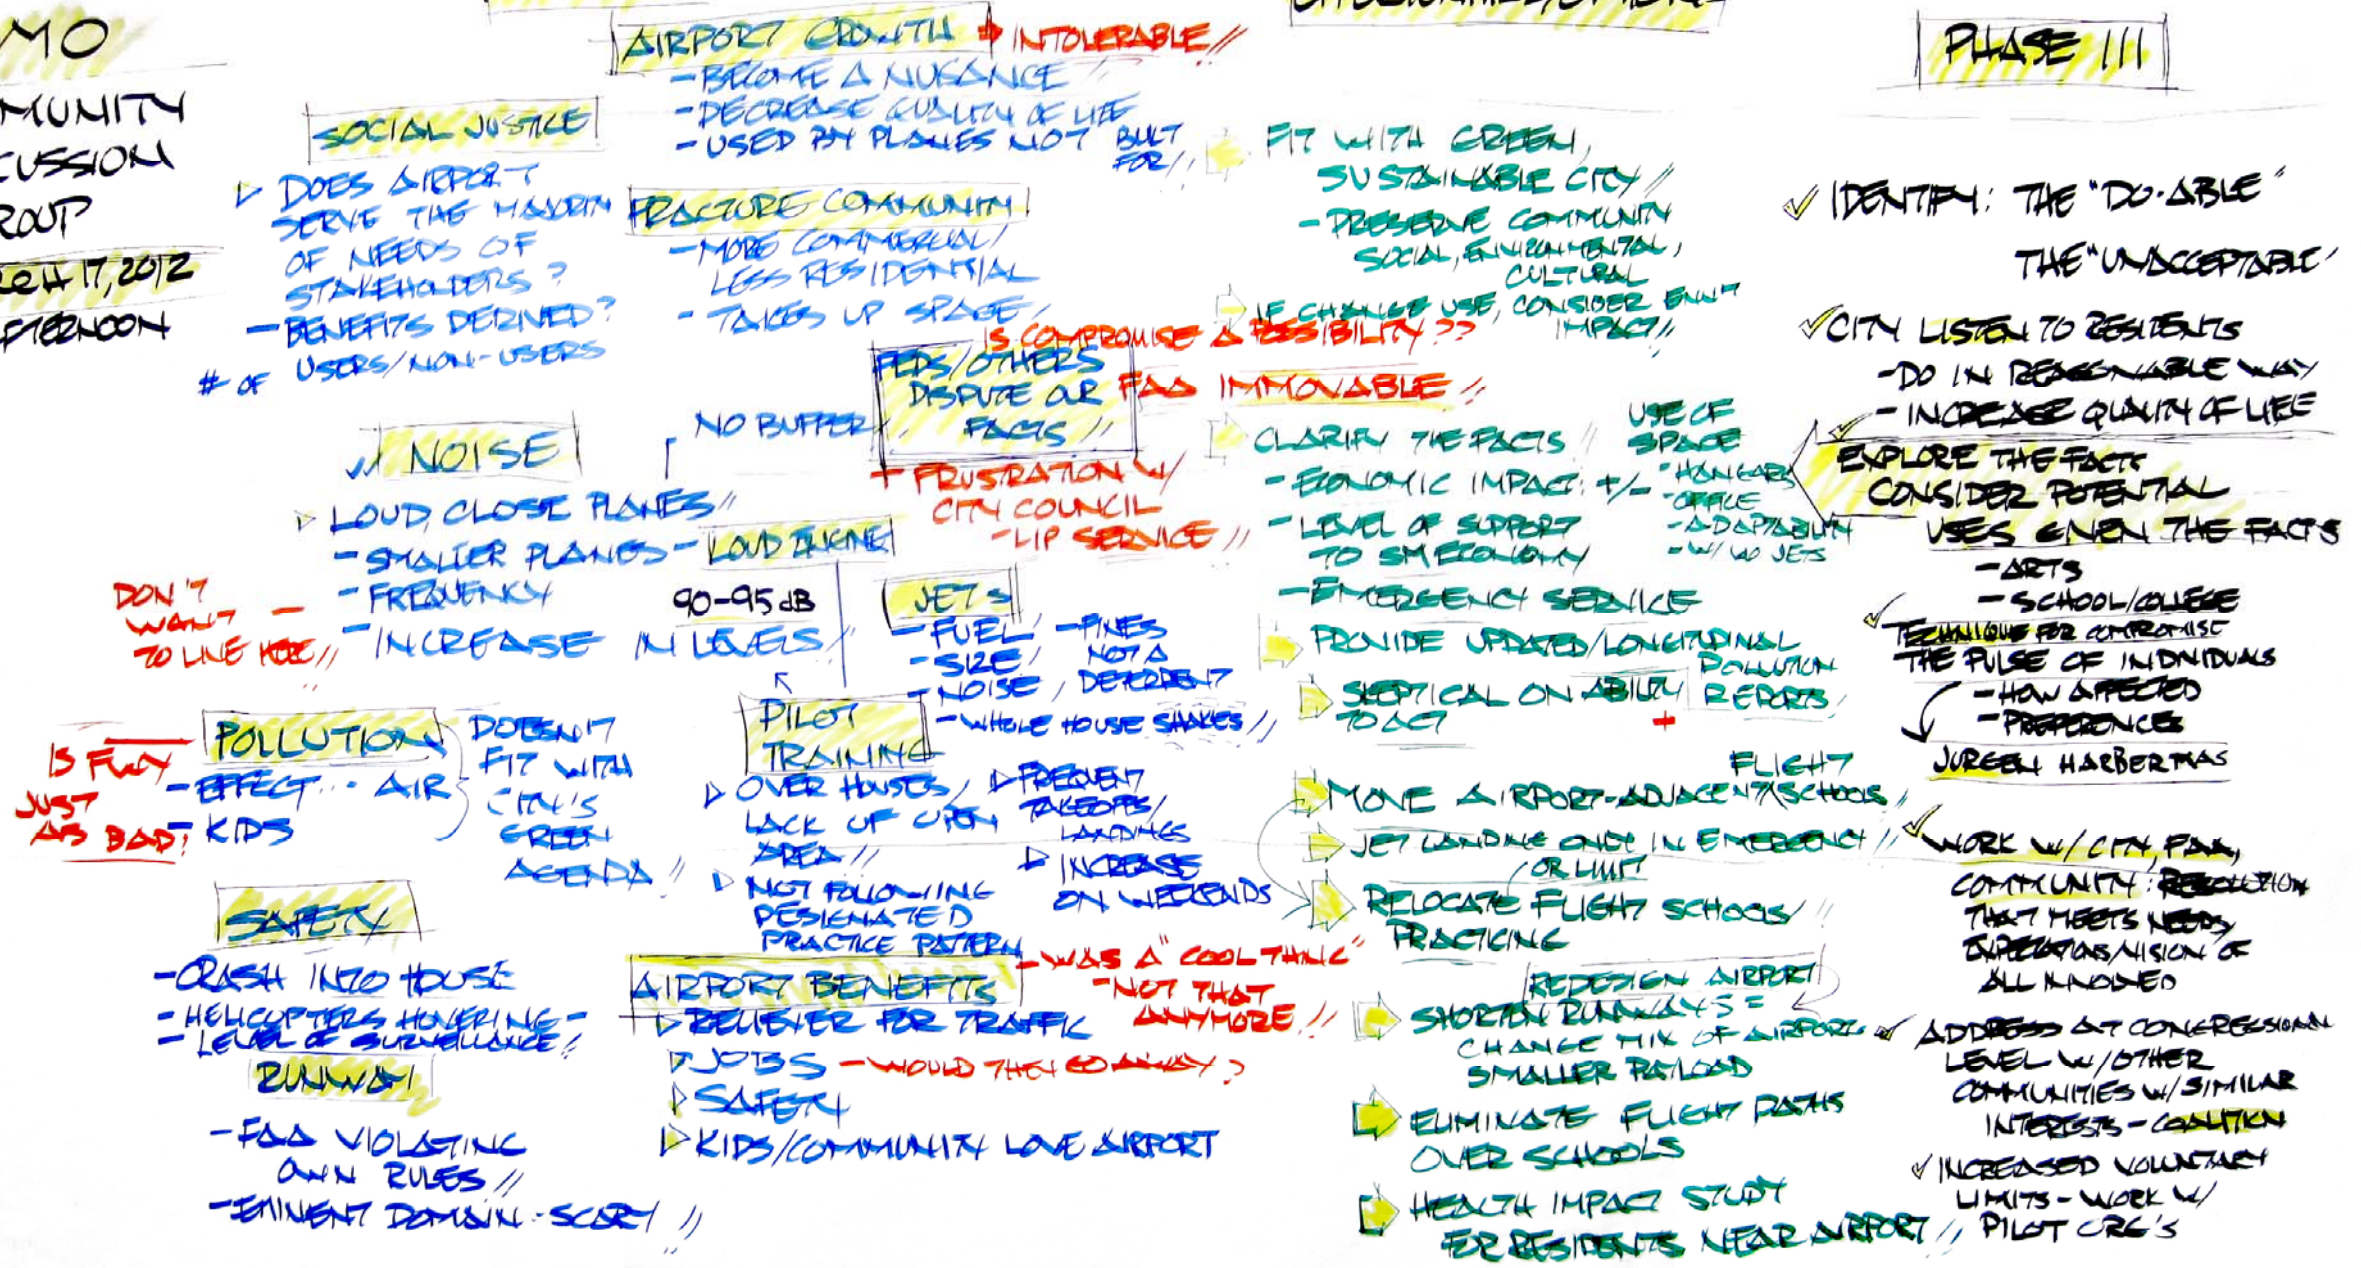 MO
MUNITY
CUSSION
ROUP
RCH 17, 2012
FTERNOON
SOCIAL JUSTICE
DOES AIRPORT
SERVE THE MAJORITY
OF NEEDS OF
STAKEHOLDERS?
- BENEFITS DERIVED?
# OF USERS/NON-USERS
✓ NOISE
LOUD, CLOSE PLANES //
- SMALLER PLANES - LOUD ENGINE
- FREQUENCY
- INCREASE IN LEVELS //
90-95 dB
NO BUFFER
DON'T
WANT -
TO LIVE HERE //
POLLUTION
- EFFECT... AIR
- KIDS
DOESN'T
FIT WITH
CITY'S
GREEN
AGENDA //
IS
JUST
AS BAD!
SAFETY
- CRASH INTO HOUSE
- HELICOPTERS HOVERING -
- LEVEL OF SURVEILLANCE /
RUNWAY
- FAA VIOLATING
OWN RULES //
- EMINENT DOMAIN - SCARY //
AIRPORT GROWTH → INTOLERABLE //
- BECOME A NUISANCE //
- DECREASE QUALITY OF LIFE
- USED BY PLANES NOT BUILT
FOR //
FRACTURE COMMUNITY
- MORE COMMERCIAL/
LESS RESIDENTIAL
- TAKES UP SPACE /
IS COMPROMISE A POSSIBILITY ??
FEDS/OTHERS
DISPUTE OUR
FACTS //
FAA IMMOVABLE //
- FRUSTRATION W/
CITY COUNCIL
- LIP SERVICE //
JETS
- FUEL /
- SIZE /
- NOISE /
- FINES
NOT A
DETERRENT
- WHOLE HOUSE SHAKES //
PILOT
TRAINING
OVER HOUSES /
LACK OF OPEN
AREA //
NOT FOLLOWING
DESIGNATED
PRACTICE PATTERN
FREQUENT
TAKEOFFS/
LANDINGS
INCREASE
ON WEEKENDS
AIRPORT BENEFITS
- WAS A "COOL THING"
- NOT THAT
ANYMORE //
RELIEVER FOR TRAFFIC
JOBS - WOULD THEY GO AWAY?
SAFETY
KIDS/COMMUNITY LOVE AIRPORT
FIT WITH GREEN,
SUSTAINABLE CITY //
- PRESERVE COMMUNITY
SOCIAL, ENVIRONMENTAL,
CULTURAL
IF CHANGE USE, CONSIDER ENV'T
IMPACT //
CLARIFY THE FACTS //
- ECONOMIC IMPACT: +/-
- LEVEL OF SUPPORT
TO SM ECONOMY
- EMERGENCY SERVICE
USE OF
SPACE
- HANGARS
- OFFICE
- ADAPTABILITY
- W/ WO JETS
PROVIDE UPDATED/LONGITUDINAL
POLLUTION
REPORTS /
SKEPTICAL ON ABILITY
TO ACT
+
FLIGHT
MOVE AIRPORT-ADJACENT SCHOOLS //
JET LANDING ONLY IN EMERGENCY //
OR LIMIT
RELOCATE FLIGHT SCHOOLS/ //
PRACTICING
REDESIGN AIRPORT
SHORTEN RUNWAYS =
CHANGE MIX OF AIRPORT
SMALLER PAYLOAD
ELIMINATE FLIGHT PATHS
OVER SCHOOLS
HEALTH IMPACT STUDY
FOR RESIDENTS NEAR AIRPORT //
PHASE III
✓ IDENTIFY: THE "DO-ABLE"
THE "UNACCEPTABLE"
✓ CITY LISTEN TO RESIDENTS
- DO IN REASONABLE WAY
- INCREASE QUALITY OF LIFE
✓ EXPLORE THE FACTS
CONSIDER POTENTIAL
USES GIVEN THE FACTS
- ARTS
- SCHOOL/COLLEGE
✓ TECHNIQUE FOR COMPROMISE
THE PULSE OF INDIVIDUALS
- HOW AFFECTED
- PREFERENCES
JURGEN HARBERMAS
✓ WORK W/ CITY, FAA,
COMMUNITY: RESOLUTION
THAT MEETS NEEDS,
EXPECTATIONS/VISION OF
ALL INVOLVED
✓ ADDRESS AT CONGRESSIONAL
LEVEL W/ OTHER
COMMUNITIES W/ SIMILAR
INTERESTS - COALITION
✓ INCREASED VOLUNTARY
LIMITS - WORK W/
PILOT ORG'S